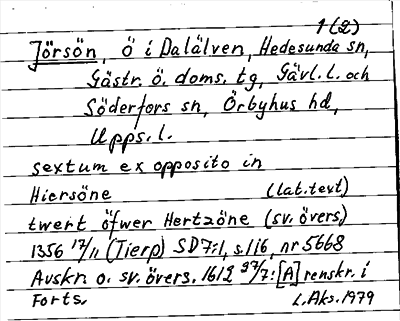 1(2)
Jörsön, ö i Dalälven, Hedesunda sn,
Gästr. ö. doms. tg, Gävl. l. och
Söderfors sn, Örbyhus hd,
Upps. l.
sextum ex opposito in
Hiersöne (lat. text)
twert öfwer Hertzöne (sv. övers.)
1356 17/11 (Tierp) SD 7:1, s. 116, nr 5668
Avskr. o. sv. övers. 1612 27/7: [A] renskr. i
Forts. L. Aks. 1979